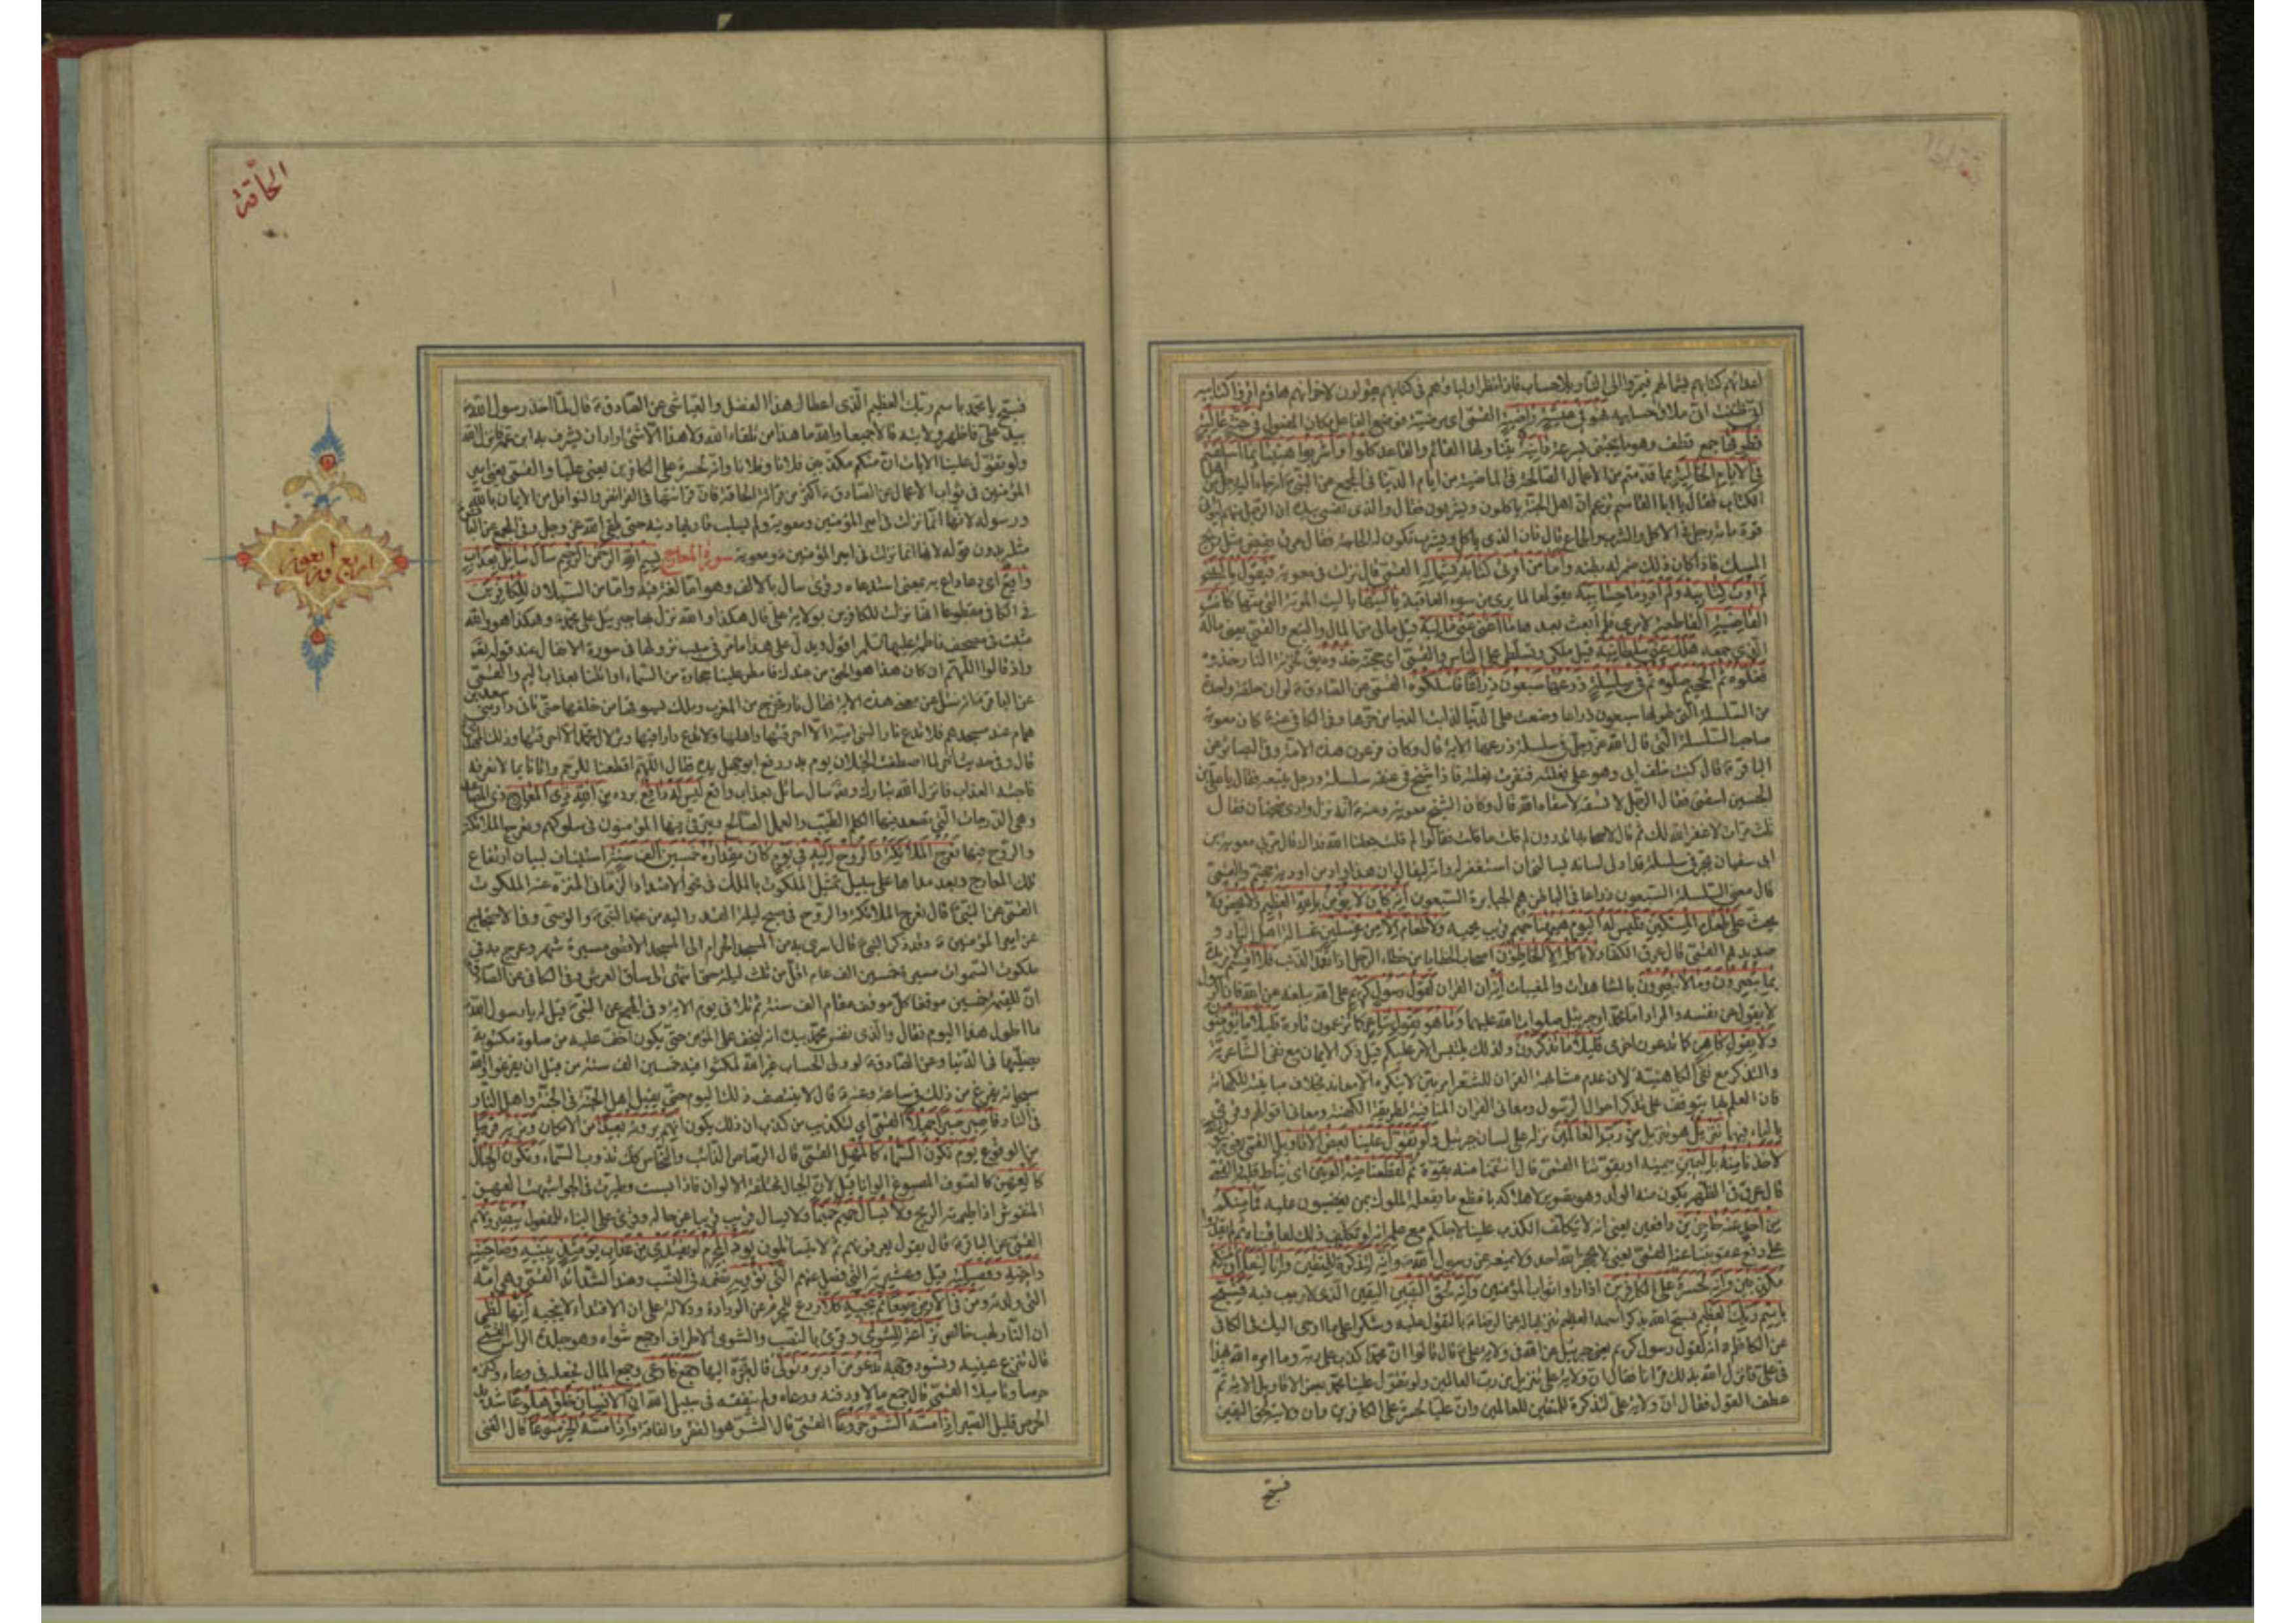 اعدائهم كتابهم بشمالهم فيمروا الى النار بلا حساب فاذا نظر اولياؤهم فى كتابهم يقولون لاخوانهم هاؤم اقرؤا كتابيه
انى ظننت انى ملاق حسابيه فهو فى عيشة راضية القمى اى مرضية فوضع الفاعل مكان المفعول فى جنة عالية
قطوفها جمع قطف وهو ما يجتنى بسرعة دانية يتناولها القائم والقاعد كلوا واشربوا هنيئا بما اسلفتم
فى الايام الخالية بما قدمتم من الاعمال الصالحة فى الماضية من ايام الدنيا فى المجمع عن النبى
الكتاب فقال يا ابا القاسم تزعم ان اهل الجنة ياكلون ويشربون فقال والذى نفسى بيده ان الرجل منهم ليؤتى
قوة مائة رجل فى الاكل والشرب والجماع قال فان الذى ياكل ويشرب تكون له الحاجة فقال عرق يفيض مثل ريح
المسك فاذا كان ذلك ضمر له بطنه واما من اوتى كتابه بشماله القمى قال نزلت فى معوية فيقول يا ليتنى
لم اوت كتابيه ولم ادر ما حسابيه يقولها لما يرى من سوء العاقبة يا ليتها يا ليت الموتة التى متها كانت
القاضية القاطعة لامرى فلم ابعث بعدها ما اغنى عنى ماليه قيل مالى من المال والتبع والقمى يعنى ماله
الذى جمعه هلك عنى سلطانيه قيل ملكى وتسلطى على الناس والقمى اى حجته خذوه يقال لخزنة النار خذوه
فغلوه ثم الجحيم صلوه ثم فى سلسلة ذرعها سبعون ذراعا فاسلكوه القمى عن الصادق لو ان حلقة واحدة
من السلسلة التى طولها سبعون ذراعا وضعت على الدنيا لذابت الدنيا من حرها وفى الكافى عنه كان معوية
صاحب السلسلة التى قال الله عز وجل فى سلسلة ذرعها الاية قال وكان فرعون هذه الامة وفى البصائر عن
الباقر قال كنت خلف ابى وهو على بغلته فنفرت بغلته فاذا شيخ فى عنقه سلسلة ورجل يتبعه فقال يا على بن
الحسين اسقنى فقال الرجل لا تسقه لا سقاه الله قال وكان الشيخ معوية وعنه انه نزل وادى ضجنان فقال
ثلث مرات لا غفر الله لك ثم قال لاصحابه اتدرون لم قلت ما قلت فقالوا لم قلت جعلنا الله فداك قال مر بى معوية بن
ابى سفيان يجر فى سلسلة قد ادلى لسانه يسالنى ان استغفر له وانه ليقال ان هذا واد من اودية جهنم والقمى
قال معنى السلسلة السبعون ذراعا فى الباطن هم الجبابرة السبعون انه كان لا يؤمن بالله العظيم ولا يحض ولا
يحث على طعام المسكين فليس له اليوم ههنا حميم قريب يحميه ولا طعام الا من غسلين غسالة اهل النار و
صديدهم القمى قال عرق الكفار لا ياكله الا الخاطؤن اصحاب الخطايا من خطئ الرجل اذا تعمد الذنب فلا اقسم
بما تبصرون وما لا تبصرون بالمشاهدات والمغيبات انه ان القران لقول رسول كريم على الله يبلغه عن الله فان الرسول
لا يقول عن نفسه والمراد اما محمد او جبرئيل صلوات الله عليهما وما هو بقول شاعر كما تزعمون تارة قليلا ما تؤمنون
ولا بقول كاهن كما تدعون اخرى قليلا ما تذكرون ولذلك يلتبس الامر عليكم قيل ذكر الايمان مع نفى الشاعرية
والتذكر مع نفى الكاهنية لان عدم مشابهة القران للشعر امر بين لا ينكره الا معاند بخلاف مباينته للكهانة
فان العلم بها يتوقف على تذكر احوال الرسول ومعانى القران المنافية لطريقة الكهنة ومعانى اقوالهم وقرئ
بالياء فيهما تنزيل هو تنزيل من رب العالمين نزله على لسان جبرئيل ولو تقول علينا بعض الاقاويل القمى يعنى رسول
لاخذنا منه باليمين بيمينه او بقوتنا القمى قال انتقمنا منه بقوة ثم لقطعنا منه الوتين اى نياط قلبه القمى
قال عرق فى الظهر يكون منه الولد وهو تصوير لاهلاكه بافظع ما يفعله الملوك بمن يغضبون عليه فما منكم
من احد عنه حاجزين دافعين يعنى انه لا يتكلف الكذب علينا لاجلكم مع علمه انه لو تكلف ذلك لعاقبناه ثم لم تقدروا
على دفع عقوبتنا عنه القمى يعنى لا يحجز الله احد ولا يمنعه عن رسول الله وانه لتذكرة للمتقين وانا لنعلم ان منكم
مكذبين وانه لحسرة على الكافرين اذا راوا ثواب المؤمنين وانه لحق اليقين اليقين الذى لا ريب فيه فسبح
باسم ربك العظيم فسبح الله بذكر اسمه العظيم تنزيها له عن الرضا بالتقول عليه وشكرا على ما اوحى اليك فى الكافى
عن الكاظم انه لقول رسول كريم يعنى جبرئيل عن الله فى ولاية على قال قالوا ان محمدا كذب على ربه وما امره الله بهذا
فى على فانزل الله بذلك قرانا فقال ان ولاية على تنزيل من رب العالمين ولو تقول علينا محمد بعض الاقاويل الاية ثم
عطف القول فقال ان ولاية على لتذكرة للمتقين للعالمين وان عليا لحسرة على الكافرين وان ولايته لحق اليقين
فسبح
الحاقة
فسبح يا محمد باسم ربك العظيم الذى اعطاك هذا الفضل والعياشى عن الصادق قال لما اخذ رسول الله
بيد على فاظهر ولايته قالا جميعا والله ما هذا من تلقاء الله ولا هذا الا شئ اراد ان يشرف به ابن عمه فانزل الله
ولو تقول علينا الايات ان منكم مكذبين فلانا وفلانا وانه لحسرة على الكافرين يعنى عليا والقمى يعنى امير
المؤمنين فى ثواب الاعمال عن الصادق اكثروا من قرائة الحاقة فان قرائتها فى الفرائض والنوافل من الايمان بالله
ورسوله لانها انما نزلت فى امير المؤمنين ومعوية ولم يسلب قاريها دينه حتى يلقى الله عز وجل وفى المجمع عن الباقر
مثله بدون قوله لانها انما نزلت فى امير المؤمنين ومعوية سورة المعارج بسم الله الرحمن الرحيم سال سائل بعذاب
واقع اى دعا داع به بمعنى استدعاه وقرئ سال بالالف وهو اما لغة فيه واما من السيلان للكافرين
فى الكافى مقطوعا انها نزلت للكافرين بولاية على قال هكذا والله نزل بها جبرئيل على محمد وهكذا هو والله
مثبت فى مصحف فاطمة عليها السلم اقول ويدل على هذا ما مر فى سبب نزولها فى سورة الانفال عند قوله تعالى
واذ قالوا اللهم ان كان هذا هو الحق من عندك فامطر علينا حجارة من السماء او ائتنا بعذاب اليم والقمى
عن الباقر انه سئل عن معنى هذه الاية فقال نار تخرج من المغرب وملك يسوقها من خلفها حتى تاتى دار بنى سعد بن
همام عند مسجدهم فلا تدع دارا لبنى امية الا احرقتها واهلها ولا تدع دارا فيها وتر لال محمد الا احرقتها وذلك المهدى
قال وفى حديث اخر لما اصطفت الخيلان يوم بدر رفع ابو جهل يده فقال اللهم اقطعنا للرحم واتانا بما لا نعرفه
فاجئه العذاب فانزل الله تبارك وتعالى سال سائل بعذاب واقع ليس له دافع يرده من الله ذى المعارج ذى المصاعد
وهى الدرجات التى يصعد فيها الكلم الطيب والعمل الصالح ويترقى فيها المؤمنون فى سلوكهم وتعرج الملائكة
والروح فيها تعرج الملائكة والروح اليه فى يوم كان مقداره خمسين الف سنة استيناف لبيان ارتفاع
تلك المعارج وبعد مداها على سبيل تمثيل الملكوت بالملك فى نحو الامتداد الزمانى المنزه عنه الملكوت
القمى عن النبى قال تعرج الملائكة والروح فى صبح ليلة القدر اليه من عند النبى والوصى وفى الاحتجاج
عن امير المؤمنين وقد ذكر النبى قال اسرى به من المسجد الحرام الى المسجد الاقصى مسيرة شهر وعرج به فى
ملكوت السموات مسيرة خمسين الف عام اقل من ثلث ليلة حتى انتهى الى ساق العرش وفى الكافى عن الصادق
ان للقيمة خمسين موقفا كل موقف مقام الف سنة ثم تلا فى يوم الاية وفى المجمع عن النبى قيل له يا رسول الله
ما اطول هذا اليوم فقال والذى نفس محمد بيده انه ليخف على المؤمن حتى يكون اخف عليه من صلوة مكتوبة
يصليها فى الدنيا وعن الصادق لو ولى الحساب غير الله لمكثوا فيه خمسين الف سنة من قبل ان يفرغوا والله
سبحانه يفرغ من ذلك فى ساعة وعنه قال لا ينتصف ذلك اليوم حتى يقيل اهل الجنة فى الجنة واهل النار
فى النار فاصبر صبرا جميلا القمى اى لتكذيب من كذب ان ذلك يكون انهم يرونه بعيدا من الامكان ونريه قريبا
من الوقوع يوم تكون السماء كالمهل القمى قال الرصاص الذائب والنحاس كذلك تذوب السماء وتكون الجبال
كالعهن كالصوف المصبوغ الوانا قيل لان الجبال مختلفة الالوان فاذا بست وطيرت فى الجو اشبهت العهن
المنفوش اذا طيرته الريح ولا يسال حميم حميما ولا يسال قريب قريبا عن حاله وقرئ على البناء للمفعول يبصرونهم
القمى عن الباقر قال يقول يعرفونهم ثم لا يتسائلون يود المجرم لو يفتدى من عذاب يومئذ ببنيه وصاحبته
واخيه وفصيلته قيل وعشيرته التى فصل عنهم التى تؤويه تضمه فى النسب وعند الشدائد القمى هى امه
التى ولدته ومن فى الارض جميعا ثم ينجيه كلا ردع للمجرم عن الودادة ودلالة على ان الافتداء لا ينجيه انها لظى
ان النار لهب خالص نزاعة للشوى وقرئ بالنصب والشوى الاطراف او جمع شواه وهو جلدة الراس القمى
قال تنزع عينيه وتسود وجهه تدعو من ادبر وتولى قال تجره اليها وجمع فاوعى وجمع المال فجعله فى وعاء وكنزه
حرصا وتاميلا القمى قال جمع مالا ودفنه ووعاه ولم ينفقه فى سبيل الله ان الانسان خلق هلوعا شديد
الحرص قليل الصبر اذا مسه الشر جزوعا القمى قال الشر هو الفقر والفاقة واذا مسه الخير منوعا قال الغنى